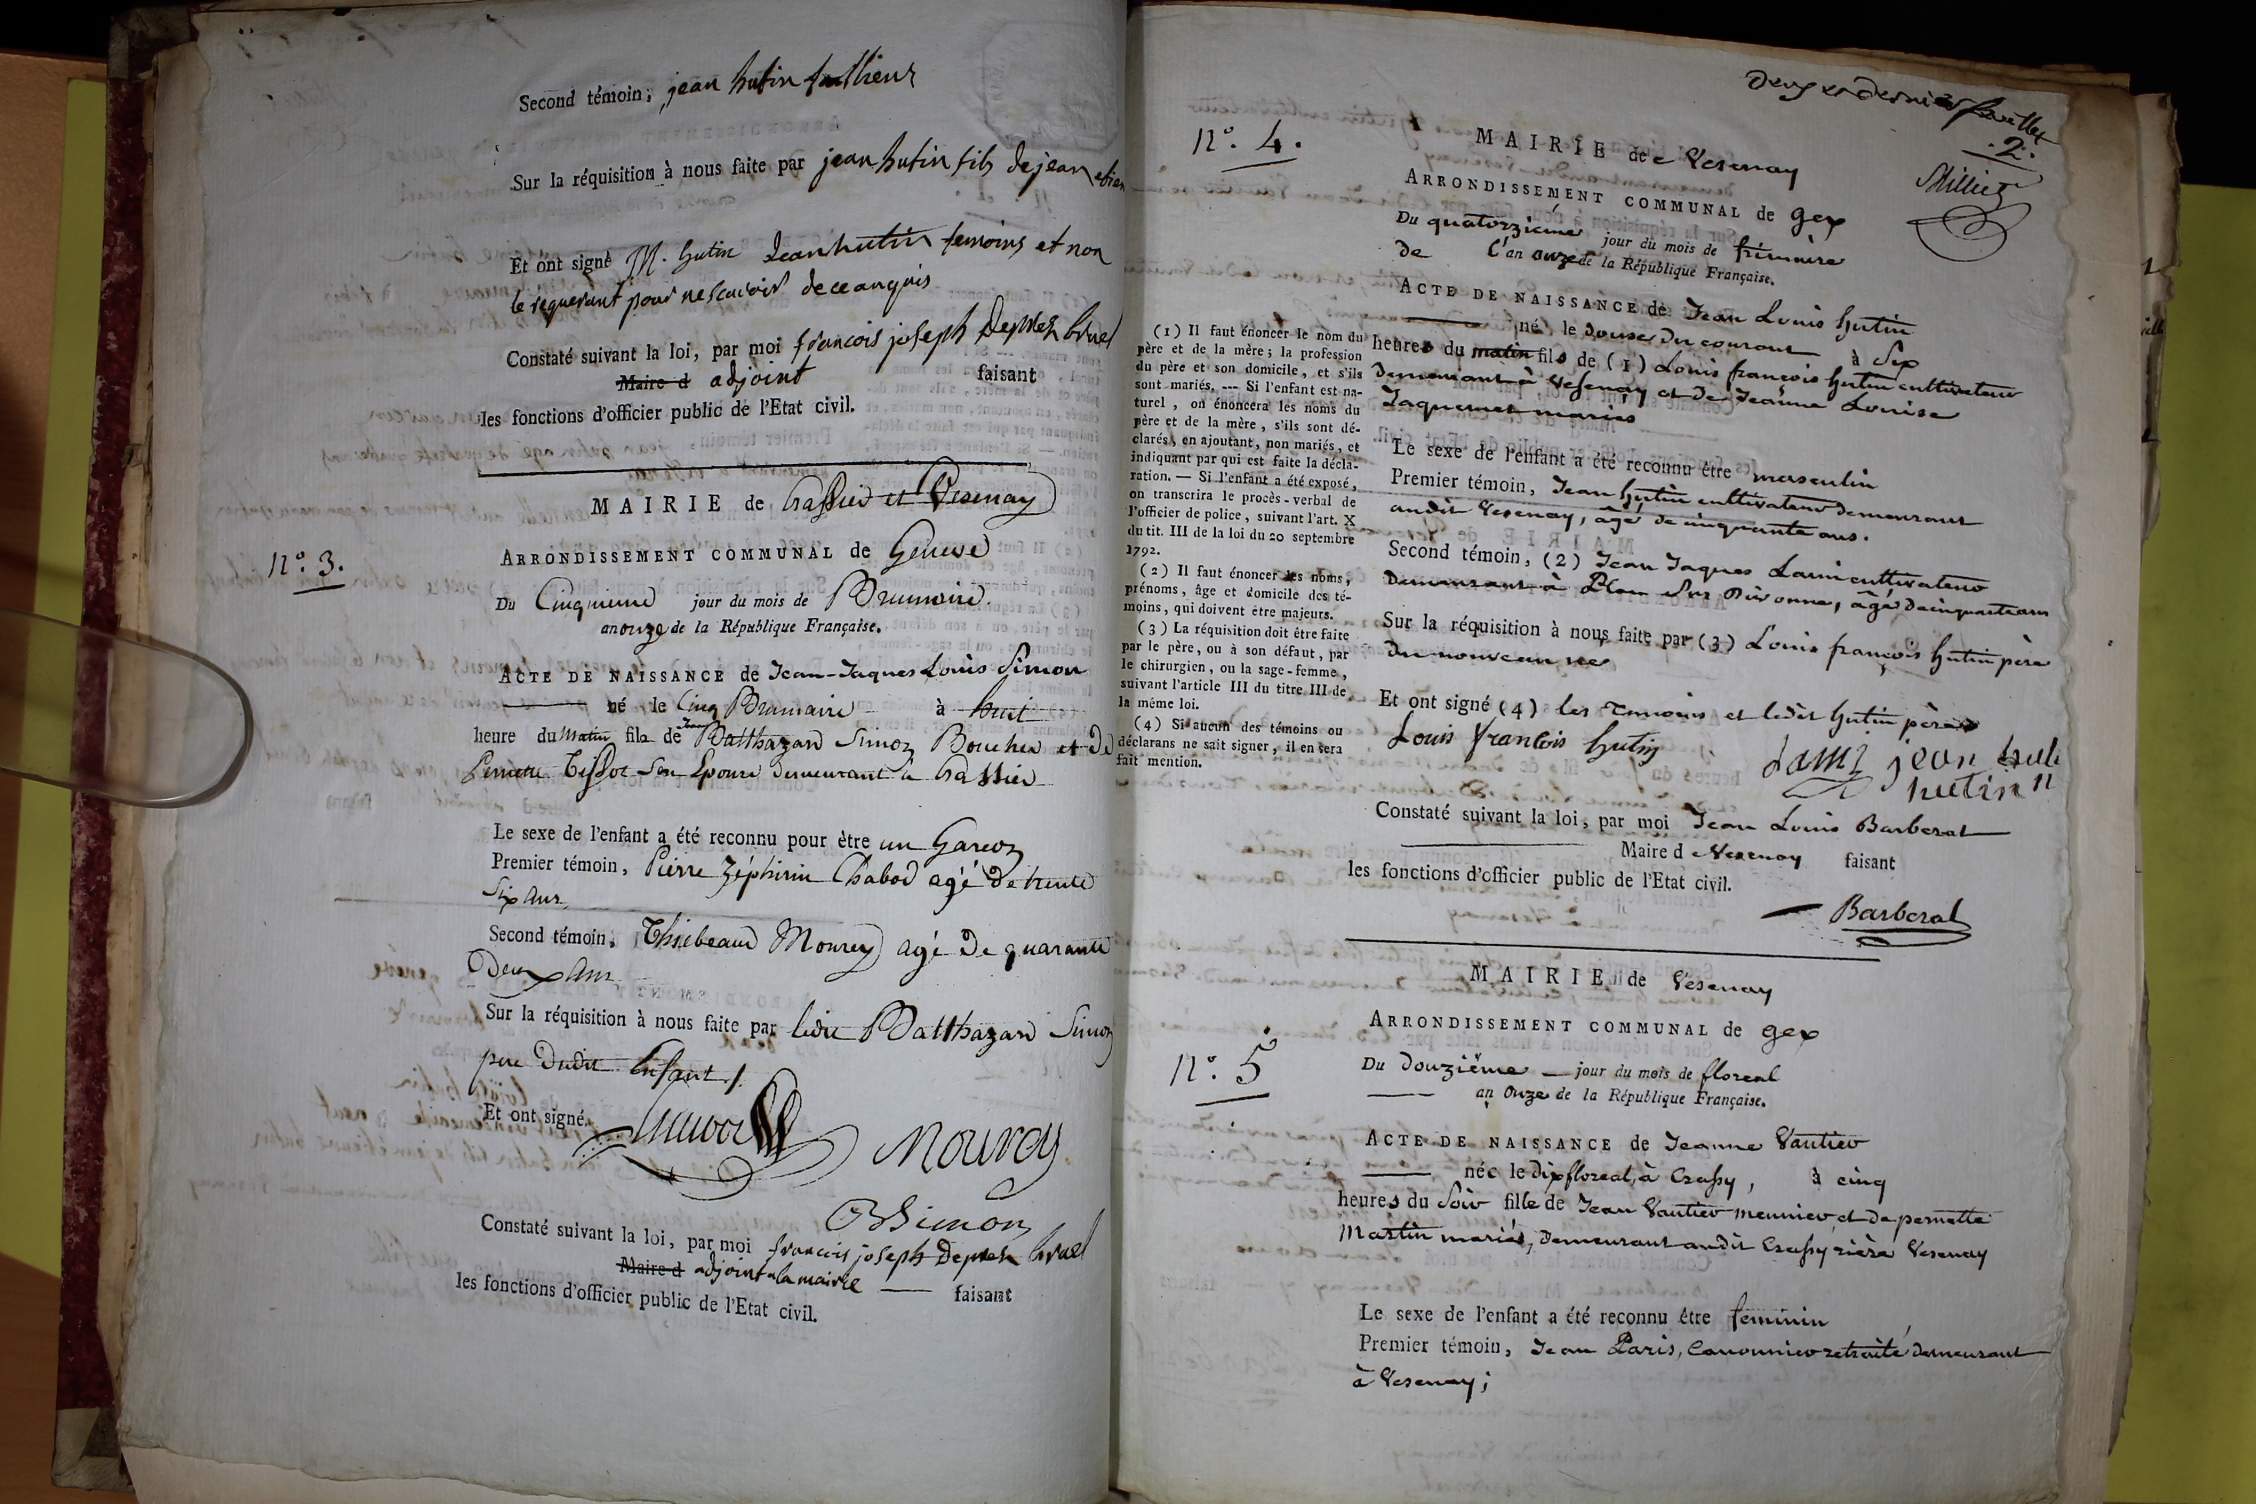 Second témoin, jean hutin tallieur
Sur la réquisition à nous faite par jean hutin fils de jean etien
Et ont signé M. hutin Jean hutin temoins et non
le requerant pour ne scavoir de ce anquis
Constaté suivant la loi, par moi francois joseph Deprez Crud
Maire d adjoint faisant
les fonctions d'officier public de l'Etat civil.
MAIRIE de Crassier et Vesenay
N.° 3.
ARRONDISSEMENT COMMUNAL de Geneve
Du Cinquieme jour du mois de Brumaire
an onze de la République Française.
ACTE DE NAISSANCE de Jean-Jaques Louis Simon
né le Cinq Brumaire à huit
heure du Matin fils de Jean Balthazard Simon Boucher et de
Pernette Tissot son Epouse demeurant à Crassier
Le sexe de l'enfant a été reconnu pour être un Garcon
Premier témoin, Pierre Zéphirin Chabod agé de trente
Six ans
Second témoin, Thiebeaud Mourey agé De quarante
Deux ans
Sur la réquisition à nous faite par ledit Balthazard Simon
pere Dudit Enfant /.
Et ont signé.
Mourey
B Simon
Constaté suivant la loi, par moi francois joseph Deprez Crud
Maire d adjoint a la mairie faisant
les fonctions d'officier public de l'Etat civil.
Deux et dernier feuillet
.2.
Milliet
N.° 4.
MAIRIE de Vesenay
ARRONDISSEMENT COMMUNAL de gex
Du quatorzieme jour du mois de frimaire
de L'an onze de la République Française.
ACTE DE NAISSANCE de Jean Louis hutin
né le douze du courant à Six
heures du matin fils de (1) Louis françois hutin cultivateur
demeurant à Vesenay et de Jeanne Louise
Jaquemet mariés
Le sexe de l'enfant a été reconnu être masculin
Premier témoin, Jean hutin cultivateur demeurant
audit Vesenay, âgé de cinquante ans.
Second témoin, (2) Jean Jaques Lami cultivateur
demeurant à Plan sur Divonne, âgé de cinquante ans
Sur la réquisition à nous faite par (3) Louis françois hutin père
du nouveau né
Et ont signé (4) les témoins et ledit hutin père
Louis francois hutin
Lami jean
hutin
Constaté suivant la loi, par moi Jean Louis Barberat
Maire de Vesenay faisant
les fonctions d'officier public de l'Etat civil.
Barberat
(1) Il faut énoncer le nom du
père et de la mère; la profession
du père et son domicile, et s'ils
sont mariés. --- Si l'enfant est na-
turel, on énoncera les noms du
père et de la mère, s'ils sont dé-
clarés, en ajoutant, non mariés, et
indiquant par qui est faite la décla-
ration. — Si l'enfant a été exposé,
on transcrira le procès-verbal de
l'officier de police, suivant l'art. X
du tit. III de la loi du 20 septembre
1792.
(2) Il faut énoncer les noms,
prénoms, âge et domicile des té-
moins, qui doivent être majeurs.
(3) La réquisition doit être faite
par le père, ou à son défaut, par
le chirurgien, ou la sage-femme,
suivant l'article III du titre III de
la même loi.
(4) Si aucun des témoins ou
déclarans ne sait signer, il en sera
fait mention.
MAIRIE de Vesenay
ARRONDISSEMENT COMMUNAL de gex
N.° 5
Du douzième jour du mois de floreal
an onze de la République Française.
ACTE DE NAISSANCE de Jeanne Vautier
née le dix floreal, à Crassy, à cinq
heures du Soir fille de Jean Vautier meunier et de pernette
Martin mariés, demeurant audit Crassy rière Vesenay
Le sexe de l'enfant a été reconnu être feminin
Premier témoin, Jean Paris, Canonnier retraité demeurant
à Vesenay;